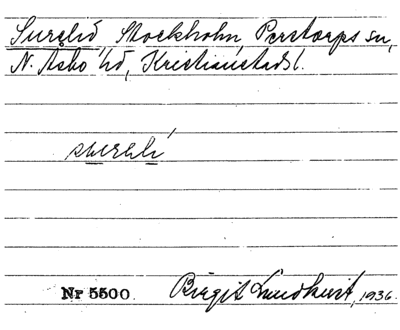 Surelid, Stockholm, Perstorps sn,
N. Åsbo hd, Kristianstads l.
Nr 5500 Birgit Lindkvist, 1936.